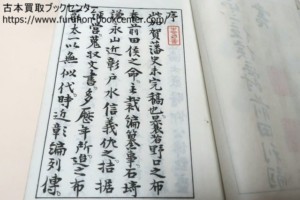 古本買取ブックセンター
https://www.furuhon-bookcenter.com/
序
此賀藩史未完稿也曩若野口之布
奉前田侯之命主裁編纂事石埼
謙永山近彰戸水信義佐之拮据
經營蒐収文書多歴年所逍之布
太一以無似代時近彰編列傳